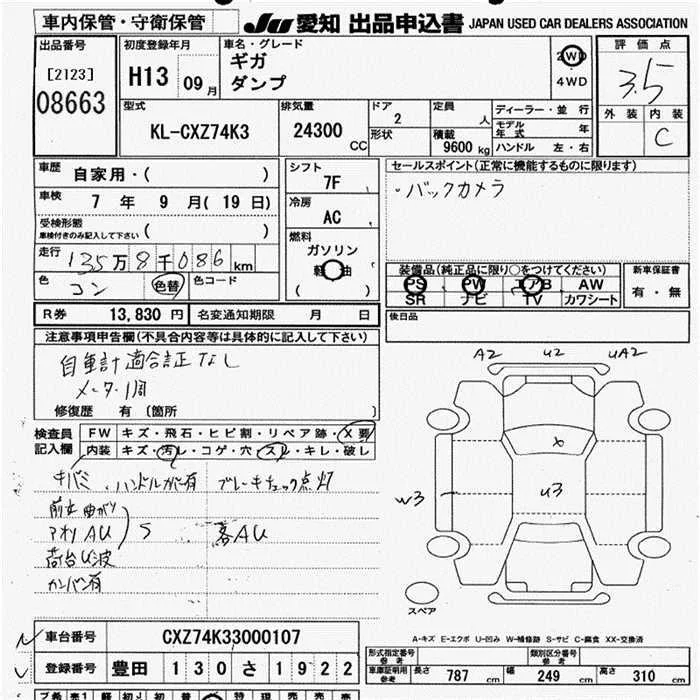 車内保管・守衛保管
JU 愛知 出品申込書 JAPAN USED CAR DEALERS ASSOCIATION
出品番号
[2123]
08663
初度登録年月
H13 09月
車名・グレード
ギガ
ダンプ
2WD
4WD
評価点
3.5
外装 内装
C
型式
KL-CXZ74K3
排気量
24300 CC
ドア
2
形状
定員
人
積載
9600 kg
ディーラー・並行
モデル年式 年
ハンドル 左・右
車歴
自家用・( )
車検
7 年 9 月(19日)
受検形態
車検付きのみ記入して下さい ( )
走行
135万8千086 km
色
コン 色替
色コード
シフト
7F
冷房
AC
燃料
ガソリン
軽油
( )
セールスポイント(正常に機能するものに限ります)
・バックカメラ
装備品(純正品に限り○をつけてください)
PS PW エアB AW
SR ナビ TV カワシート
新車保証書
有・無
R券 13,830 円 名変通知期限 月 日
後日品
注意事項申告欄(不具合内容等は具体的に記入して下さい)
自重計適合証なし
メーター1周
修復歴 有 〔箇所 〕
検査員
記入欄
FW キズ・飛石・ヒビ割・リペア跡・X要
内装 キズ・汚レ・コゲ・穴・スレ・キレ・破レ
キバミ ハンドルガバ有 ブレーキチェック点灯
曲がり
アオリ AU S
荷台U波
カンバン有
A2 U2 UA2
W3
U3
スペア
A-キズ E-エクボ U-凹み W-補修跡 S-サビ C-腐食 XX-交換済
車台番号 CXZ74K33000107
登録番号 豊田 130 さ 1922
形式指定番号
参考
類別区分番号
参考
車庫証明用
参考
長さ 787 cm 幅 249 cm 高さ 310 cm